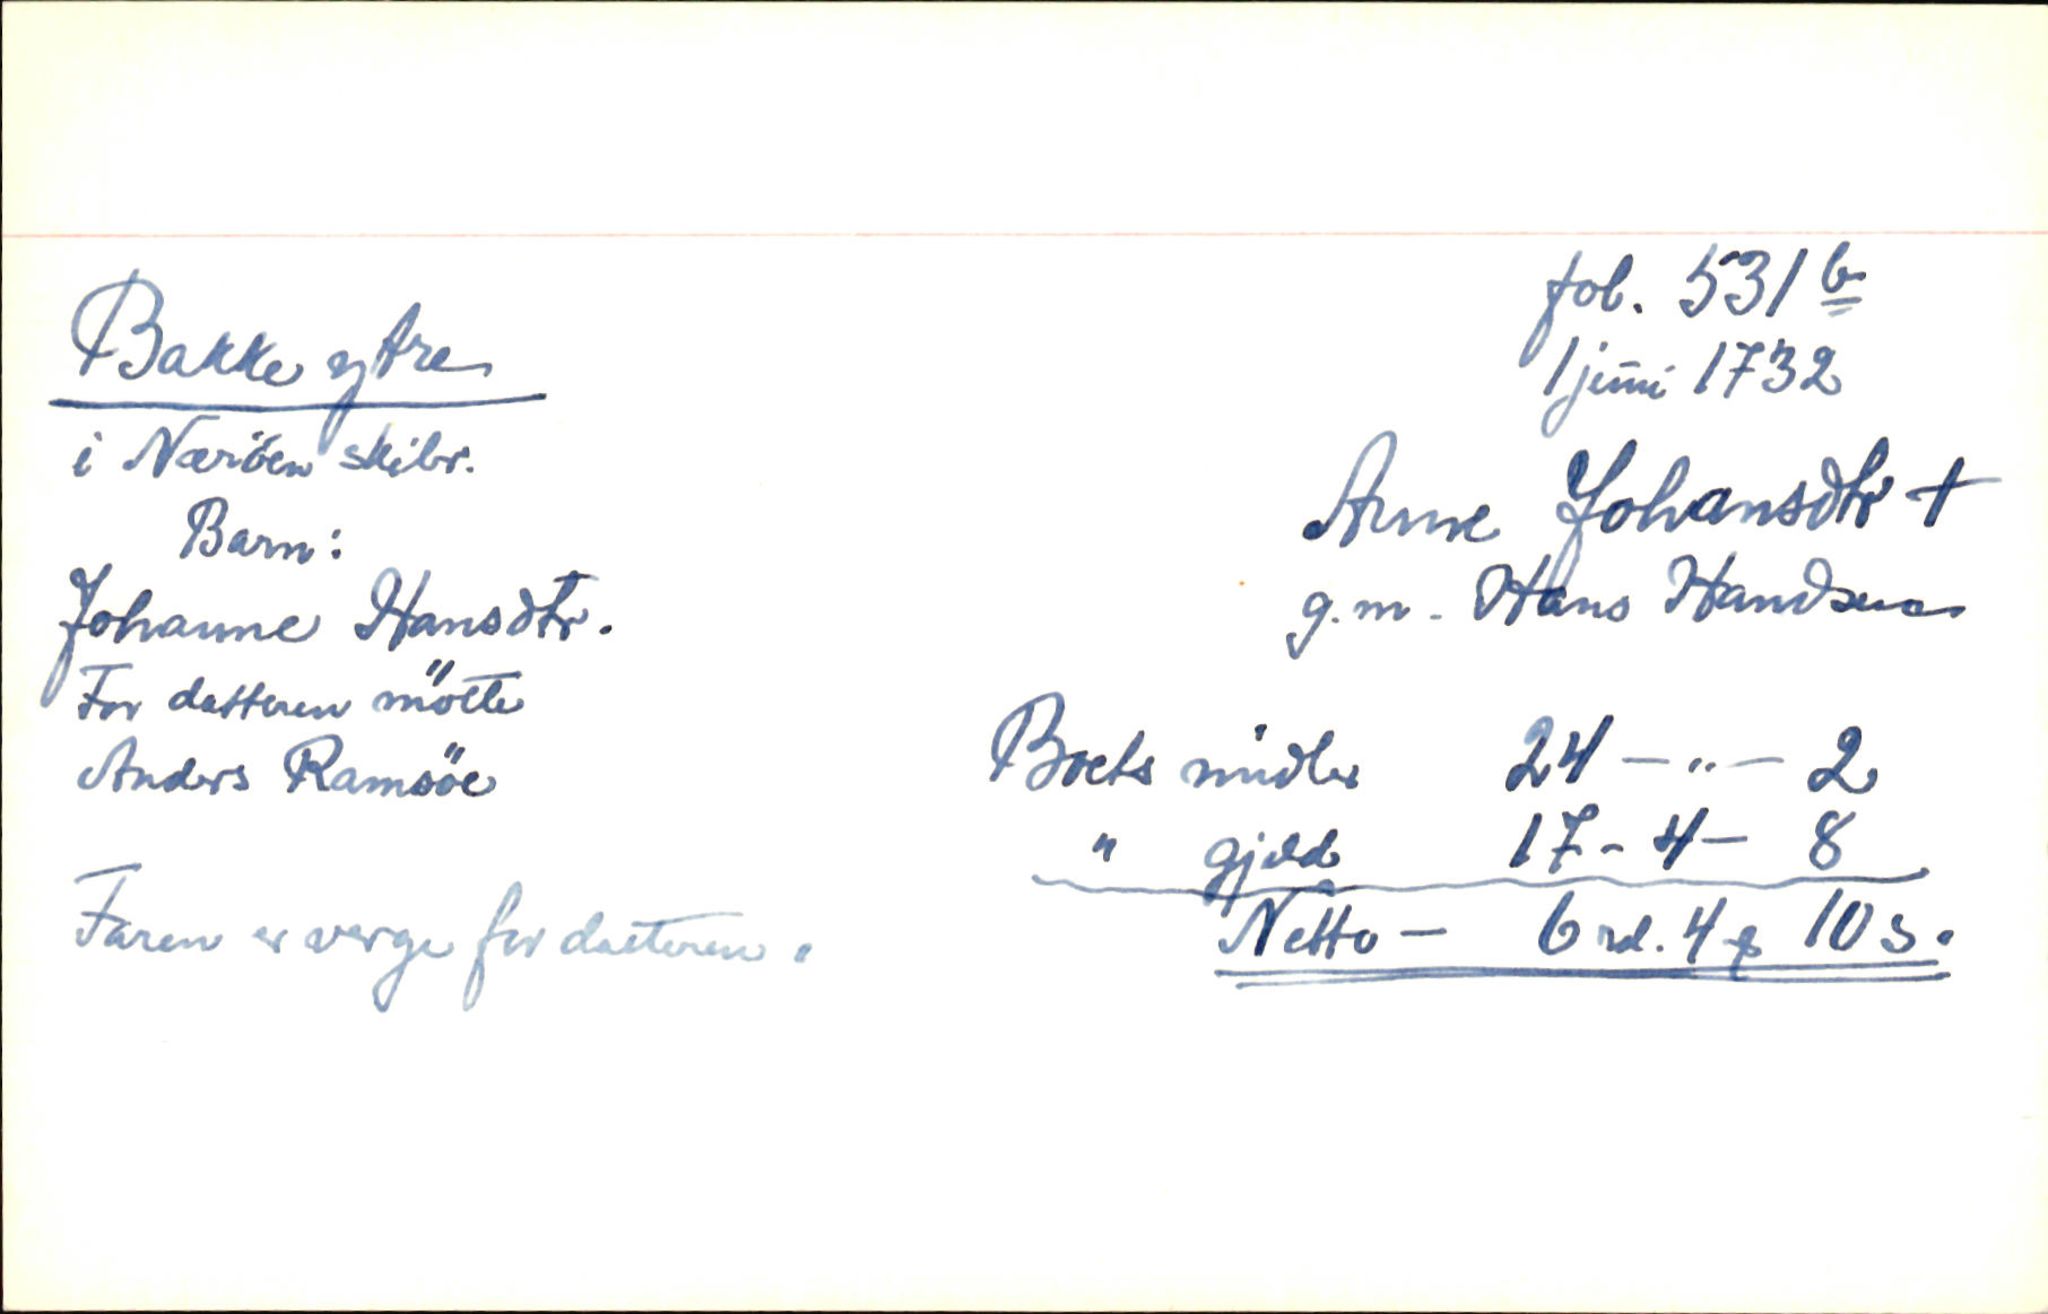 fol. 531 b
1 juni 1732
Bakke ytre
i Næröen skibr.
Barn:
Johanne Hansdtr.
For datteren mötte
Anders Ramsöe
Faren er verge for datteren.
Anne Johansdtr +
g.m. Hans Handsen
Boets midler 24 - " - 2
" gjeld 17 - 4 - 8
Netto - 6 rd. 4 ₻ 10 s.